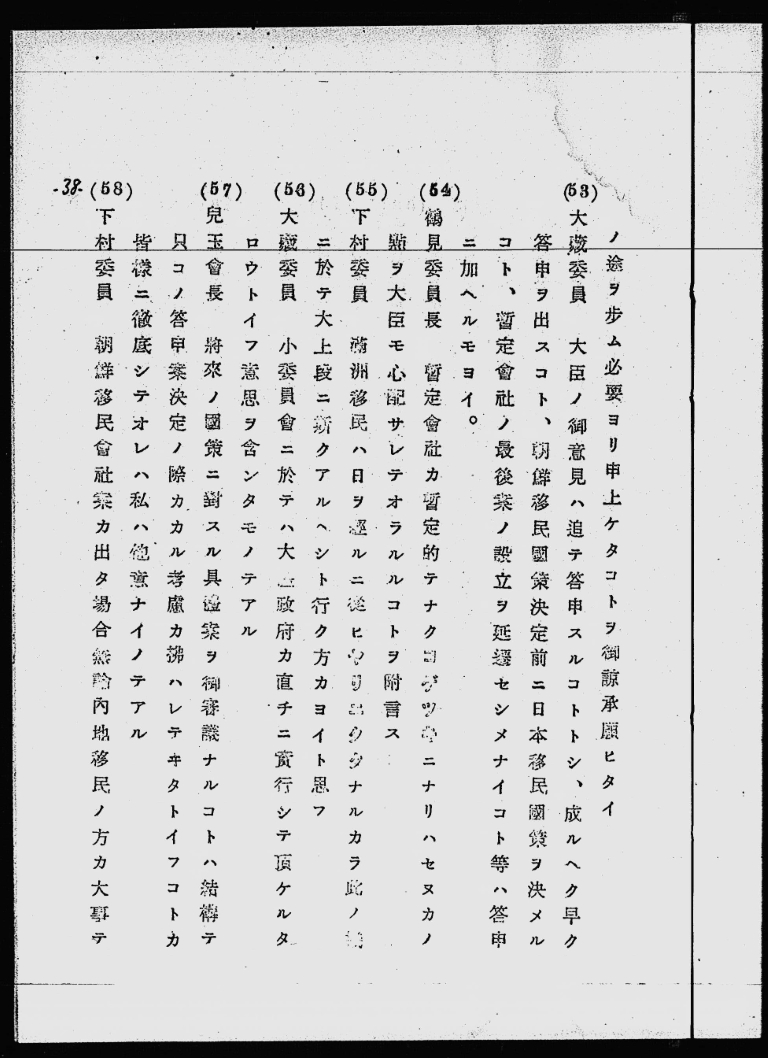 ノ途ヲ步ム必要ヨリ申上ケタコトヲ御諒承願ヒタイ
(53) 大藏委員 大臣ノ御意見ハ追テ答申スルコトトシ、成ルヘク早ク
答申ヲ出スコト、朝鮮移民國策決定前ニ日本移民國策ヲ決メル
コト、暫定會社ノ最後案ノ設立ヲ延遷セシメナイコト等ハ答申
ニ加ヘルモヨイ。
(54) 鶴見委員長 暫定會社カ暫定的テナクコゲツキニナリハセヌカノ
點ヲ大臣モ心配サレテオラルルコトヲ附言ス
(55) 下村委員 滿洲移民ハ日ヲ經ルニ從ヒ ナルカラ此ノ
ニ於テ大上段ニ斯クアルヘシト行ク方カヨイト思フ
(56) 大藏委員 小委員會ニ於テハ大 政府カ直チニ實行シテ頂ケルタ
ロウトイフ意思ヲ含ンタモノテアル
(57) 兒玉會長 將來ノ國策ニ對スル具體案ヲ御審議ナルコトハ結構テ
只コノ答申案決定ノ際カカル考慮カ拂ハレテヰタトイフコトカ
皆樣ニ徹底シテオレハ私ハ他意ナイノテアル
(58) 下村委員 朝鮮移民會社案カ出タ場合無論內地移民ノ方カ大事テ
-38-